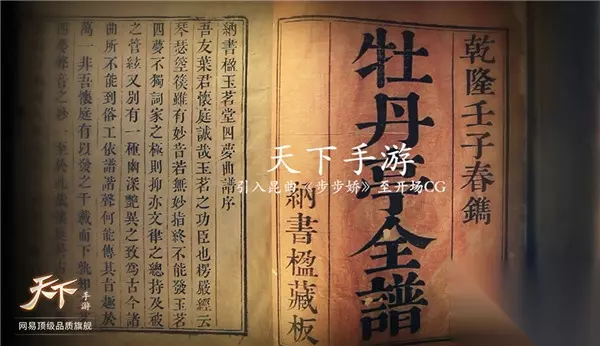 乾隆壬子春鐫
牡丹亭全譜
納書楹藏板
天下手游
引入昆曲《步步娇》至开场CG
納書楹玉茗堂四夢曲譜序
吾友葉君懷庭誠哉玉茗之功臣也楞嚴經云
琴瑟箜篌雖有妙音若無妙指終不能發玉茗
四夢不獨詞家之極則抑亦文律之總持及被
之管絃又別有一種幽深艷異之致為古今諸
曲所不能到俗工依譜諧聲何能傳其旨趣於
萬一非吾懷庭有以發之千載而下孰知
四夢聲音之妙一至於此哉
天下
手游
网易顶级品质旗舰